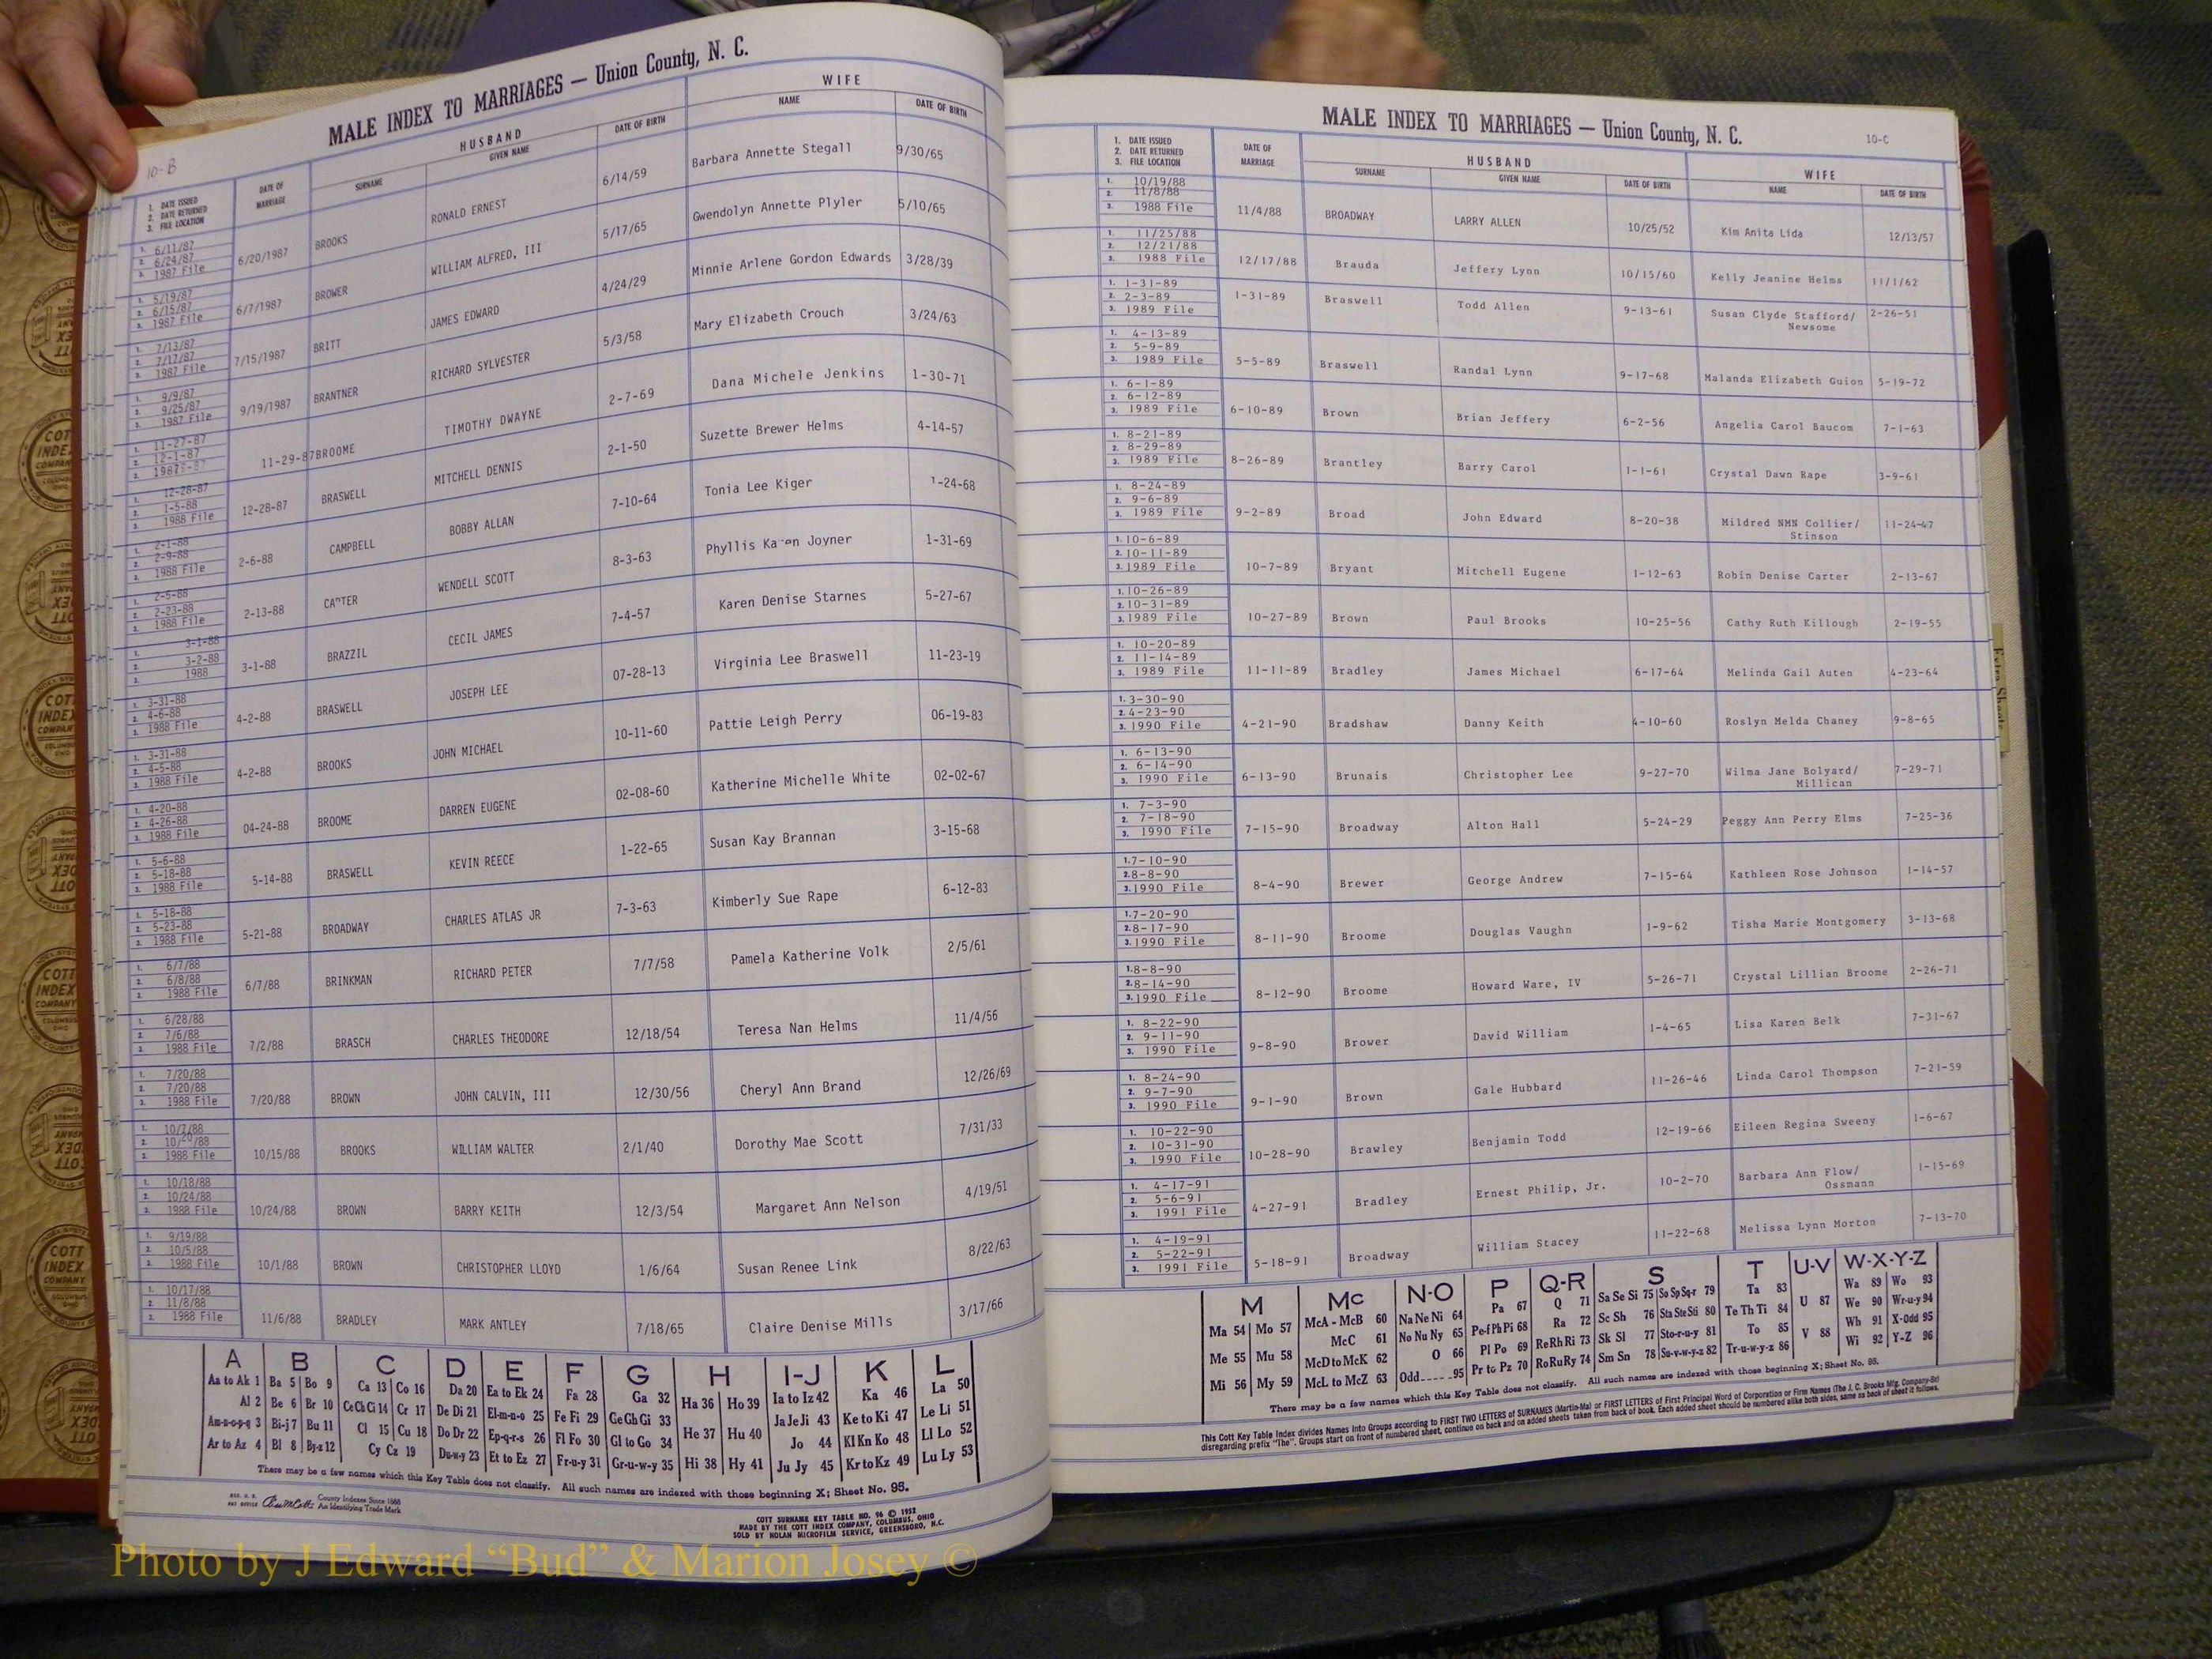 10-B
MALE INDEX TO MARRIAGES — Union County, N. C.
HUSBAND WIFE
1. DATE ISSUED 2. DATE RETURNED 3. FILE LOCATION DATE OF MARRIAGE SURNAME GIVEN NAME DATE OF BIRTH NAME DATE OF BIRTH
1. 6/11/87 2. 6/24/87 3. 1987 File 6/20/1987 BROOKS RONALD ERNEST 6/14/59 Barbara Annette Stegall 9/30/65
1. 5/19/87 2. 6/15/87 3. 1987 File 6/7/1987 BROWER WILLIAM ALFRED, III 5/17/65 Gwendolyn Annette Plyler 5/10/65
1. 7/13/87 2. 7/17/87 3. 1987 File 7/15/1987 BRITT JAMES EDWARD 4/24/29 Minnie Arlene Gordon Edwards 3/28/39
1. 9/9/87 2. 9/25/87 3. 1987 File 9/19/1987 BRANTNER RICHARD SYLVESTER 5/3/58 Mary Elizabeth Crouch 3/24/63
1. 11-27-87 2. 12-1-87 3. 1987 11-29-87 BROOME TIMOTHY DWAYNE 2-7-69 Dana Michele Jenkins 1-30-71
1. 12-28-87 2. 1-5-88 3. 1988 File 12-28-87 BRASWELL MITCHELL DENNIS 2-1-50 Suzette Brewer Helms 4-14-57
1. 2-1-88 2. 2-9-88 3. 1988 File 2-6-88 CAMPBELL BOBBY ALLAN 7-10-64 Tonia Lee Kiger 1-24-68
1. 2-5-88 2. 2-23-88 3. 1988 File 2-13-88 CARTER WENDELL SCOTT 8-3-63 Phyllis Karen Joyner 1-31-69
1. 3-1-88 2. 3-2-88 3. 1988 3-1-88 BRAZZIL CECIL JAMES 7-4-57 Karen Denise Starnes 5-27-67
1. 3-31-88 2. 4-6-88 3. 1988 File 4-2-88 BRASWELL JOSEPH LEE 07-28-13 Virginia Lee Braswell 11-23-19
1. 3-31-88 2. 4-5-88 3. 1988 File 4-2-88 BROOKS JOHN MICHAEL 10-11-60 Pattie Leigh Perry 06-19-83
1. 4-20-88 2. 4-26-88 3. 1988 File 04-24-88 BROOME DARREN EUGENE 02-08-60 Katherine Michelle White 02-02-67
1. 5-6-88 2. 5-18-88 3. 1988 File 5-14-88 BRASWELL KEVIN REECE 1-22-65 Susan Kay Brannan 3-15-68
1. 5-18-88 2. 5-23-88 3. 1988 File 5-21-88 BROADWAY CHARLES ATLAS JR 7-3-63 Kimberly Sue Rape 6-12-83
1. 6/7/88 2. 6/8/88 3. 1988 File 6/7/88 BRINKMAN RICHARD PETER 7/7/58 Pamela Katherine Volk 2/5/61
1. 6/28/88 2. 7/6/88 3. 1988 File 7/2/88 BRASCH CHARLES THEODORE 12/18/54 Teresa Nan Helms 11/4/56
1. 7/20/88 2. 7/20/88 3. 1988 File 7/20/88 BROWN JOHN CALVIN, III 12/30/56 Cheryl Ann Brand 12/26/69
1. 10/7/88 2. 10/20/88 3. 1988 File 10/15/88 BROOKS WILLIAM WALTER 2/1/40 Dorothy Mae Scott 7/31/33
1. 10/18/88 2. 10/24/88 3. 1988 File 10/24/88 BROWN BARRY KEITH 12/3/54 Margaret Ann Nelson 4/19/51
1. 9/19/88 2. 10/5/88 3. 1988 File 10/1/88 BROWN CHRISTOPHER LLOYD 1/6/64 Susan Renee Link 8/22/63
1. 10/17/88 2. 11/8/88 3. 1988 File 11/6/88 BRADLEY MARK ANTLEY 7/18/65 Claire Denise Mills 3/17/66
A B C D E F G H I-J K L
Aa to Ak 1 Ba 5 Bo 9 Ca 13 Co 16 Da 20 Ea to Ek 24 Fa 28 Ga 32 Ha 36 Ho 39 Ia to Iz 42 Ka 46 La 50
Al 2 Be 6 Br 10 Ce Ch Ci 14 Cr 17 De Di 21 El-m-n-o 25 Fe Fi 29 Ge Gh Gi 33 He 37 Hu 40 Ja Je Ji 43 Ke to Ki 47 Le Li 51
Am-n-o-p-q 3 Bi-j 7 Bu 11 Cl 15 Cu 18 Do Dr 22 Ep-q-r-s 26 Fl Fo 30 Gl to Go 34 Jo 44 Kl Kn Ko 48 Ll Lo 52
Ar to Az 4 Bl 8 By-z 12 Cy Cz 19 Du-w-y 23 Et to Ez 27 Fr-u-y 31 Gr-u-w-y 35 Hi 38 Hy 41 Ju Jy 45 Kr to Kz 49 Lu Ly 53
There may be a few names which this Key Table does not classify. All such names are indexed with those beginning X; Sheet No. 95.
County Indexes Since 1888
An Identifying Trade Mark
COTT SURNAME KEY TABLE NO. 96 © 1952
MADE BY THE COTT INDEX COMPANY, COLUMBUS, OHIO
SOLD BY NOLAN MICROFILM SERVICE, GREENSBORO, N.C.
MALE INDEX TO MARRIAGES — Union County, N. C.
10-C
HUSBAND WIFE
1. DATE ISSUED 2. DATE RETURNED 3. FILE LOCATION DATE OF MARRIAGE SURNAME GIVEN NAME DATE OF BIRTH NAME DATE OF BIRTH
1. 10/19/88 2. 11/8/88 3. 1988 File 11/4/88 BROADWAY LARRY ALLEN 10/25/52 Kim Anita Lida 12/13/57
1. 11/25/88 2. 12/21/88 3. 1988 File 12/17/88 Brauda Jeffery Lynn 10/15/60 Kelly Jeanine Helms 11/1/62
1. 1-31-89 2. 2-3-89 3. 1989 File 1-31-89 Braswell Todd Allen 9-13-61 Susan Clyde Stafford/ Newsome 2-26-51
1. 4-13-89 2. 5-9-89 3. 1989 File 5-5-89 Braswell Randal Lynn 9-17-68 Malanda Elizabeth Guion 5-19-72
1. 6-1-89 2. 6-12-89 3. 1989 File 6-10-89 Brown Brian Jeffery 6-2-56 Angelia Carol Baucom 7-1-63
1. 8-21-89 2. 8-29-89 3. 1989 File 8-26-89 Brantley Barry Carol 1-1-61 Crystal Dawn Rape 3-9-61
1. 8-24-89 2. 9-6-89 3. 1989 File 9-2-89 Broad John Edward 8-20-38 Mildred NMN Collier/ Stinson 11-24-47
1. 10-6-89 2. 10-11-89 3. 1989 File 10-7-89 Bryant Mitchell Eugene 1-12-63 Robin Denise Carter 2-13-67
1. 10-26-89 2. 10-31-89 3. 1989 File 10-27-89 Brown Paul Brooks 10-25-56 Cathy Ruth Killough 2-19-55
1. 10-20-89 2. 11-14-89 3. 1989 File 11-11-89 Bradley James Michael 6-17-64 Melinda Gail Auten 4-23-64
1. 3-30-90 2. 4-23-90 3. 1990 File 4-21-90 Bradshaw Danny Keith 4-10-60 Roslyn Melda Chaney 9-8-65
1. 6-13-90 2. 6-14-90 3. 1990 File 6-13-90 Brunais Christopher Lee 9-27-70 Wilma Jane Bolyard/ Millican 7-29-71
1. 7-3-90 2. 7-18-90 3. 1990 File 7-15-90 Broadway Alton Hall 5-24-29 Peggy Ann Perry Elms 7-25-36
1. 7-10-90 2. 8-8-90 3. 1990 File 8-4-90 Brewer George Andrew 7-15-64 Kathleen Rose Johnson 1-14-57
1. 7-20-90 2. 8-17-90 3. 1990 File 8-11-90 Broome Douglas Vaughn 1-9-62 Tisha Marie Montgomery 3-13-68
1. 8-8-90 2. 8-14-90 3. 1990 File 8-12-90 Broome Howard Ware, IV 5-26-71 Crystal Lillian Broome 2-26-71
1. 8-22-90 2. 9-11-90 3. 1990 File 9-8-90 Brower David William 1-4-65 Lisa Karen Belk 7-31-67
1. 8-24-90 2. 9-7-90 3. 1990 File 9-1-90 Brown Gale Hubbard 11-26-46 Linda Carol Thompson 7-21-59
1. 10-22-90 2. 10-31-90 3. 1990 File 10-28-90 Brawley Benjamin Todd 12-19-66 Eileen Regina Sweeny 1-6-67
1. 4-17-91 2. 5-6-91 3. 1991 File 4-27-91 Bradley Ernest Philip, Jr. 10-2-70 Barbara Ann Flow/ Ossmann 1-15-69
1. 4-19-91 2. 5-22-91 3. 1991 File 5-18-91 Broadway William Stacey 11-22-68 Melissa Lynn Morton 7-13-70
M Mc N-O P Q-R S T U-V W-X-Y-Z
Ma 54 Mo 57 McA - McB 60 Na Ne Ni 64 Pa 67 Q 71 Sa Se Si 75 So Sp Sq-r 79 Ta 83 U 87 Wa 89 Wo 93
McC 61 No Nu Ny 65 Pe-f Ph Pi 68 Ra 72 Sc Sh 76 Sta Ste Sti 80 Te Th Ti 84 We 90 Wr-u-y 94
Me 55 Mu 58 McD to McK 62 O 66 Pl Po 69 Re Rh Ri 73 Sk Sl 77 Sto-r-u-y 81 To 85 V 88 Wh 91 X-Odd 95
Mi 56 My 59 McL to McZ 63 Odd 95 Pr to Pz 70 Ro Ru Ry 74 Sm Sn 78 Su-v-w-y-z 82 Tr-u-w-y-z 86 Wi 92 Y-Z 96
There may be a few names which this Key Table does not classify. All such names are indexed with those beginning X; Sheet No. 95.
This Cott Key Table Index divides Names Into Groups according to FIRST TWO LETTERS of SURNAMES (Martin-Ma) or FIRST LETTERS of First Principal Word of Corporation or Firm Names (The J. C. Brooks Mfg. Company-Br)
disregarding prefix "The". Groups start on front of numbered sheet, continue on back and on added sheets taken from back of book. Each added sheet should be numbered alike both sides, same as back of sheet it follows.
COTT INDEX COMPANY
Photo by J Edward “Bud” & Marion Josey ©